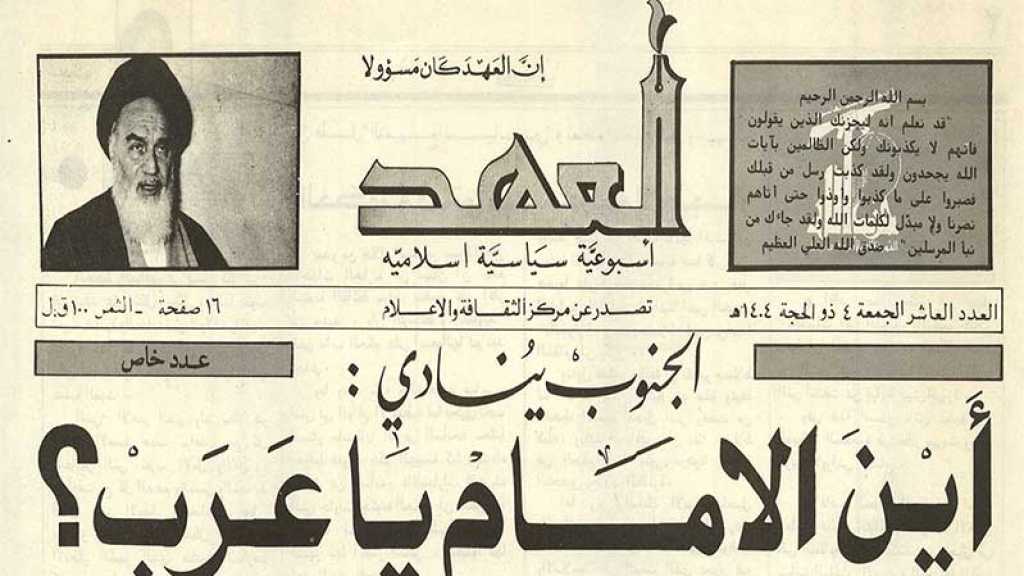 إنَّ العَهْدَ كَانَ مَسْؤولا
العهد
أسبوعيَّة سياسيَّة اسلاميّه
بسم الله الرحمن الرحيم
"قد نعلم انه ليحزنك الذين يقولون
فانهم لا يكذبونك ولكن الظالمين بآيات
الله يجحدون ولقد كذبت رسل من قبلك
فصبروا على ما كذبوا وأوذوا حتى أتاهم
نصرنا ولا مبدّل لكلمات الله ولقد جاءك من
نبأ المرسلين" صدق الله العلي العظيم
العدد العاشر الجمعة ٤ ذو الحجة ١٤٠٤هـ
تصدر عن مركز الثقافة والاعلام
١٦ صفحة - الثمن ١٠٠ ق.ل
عدد خاص
الجنوب يُنادي :
أَيْنَ الامَامْ يَا عَرَبْ؟